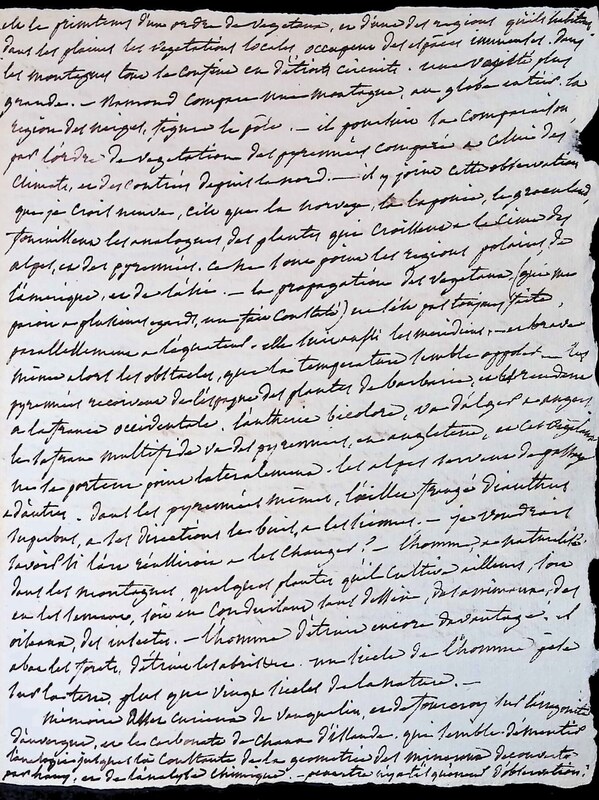 de le printems d'un ordre de vegetaux, et d'une des regions qu'ils habitent
dans les plaines les vegetations locales, occupent des espaces immenses. Dans
les montagnes tout se confine en détroits circuits. une vaste plus
grande. — Ramond compare une montagne, au globe entier. la
region des neiges, figure le pôle. — il poursuit la comparaison
par l'ordre de vegetation des pyrennées comparé a celui des
climats, et des contrées depuis le nord. — il y joint cette observation
que je crois neuve, c'est que la norvege, la laponie, le groenland
fournissent les analogues, des plantes qui croissent a la cime des
alpes, et des pyrennées. ce ne sont point les regions polaires, de
l'amérique, et de l'asie. — la propagation des vegetaux (qui me
paroit a plusieurs egards, un fait constaté) ne s'est pas toujours faite,
parallellement a l'équateur. elle suit aussi les meridiens, — et brave
même alors les obstacles, que la temperature semble opposer. — les
pyrennées recoivent de l'espagne des plantes de barbarie, et les rendent
a la france occidentale. l'antheric bicolore, va d'alger a angers
le
 multifide va des pyrennées, en angleterre, et ces vegetaux
ne se portent point lateralement. les alpes servent de passage
a d'autres. dans les pyrennées mêmes, l'œillet frangé dianthus
superbus, a ses directions le buis, a les siennes. — je voudrois
savoir si l'on réussiroit a les changer? — l'homme, a naturalisé
dans les montagnes, quelques plantes qu'il cultive ailleurs, soit
en les semant, soit en conduisant sans dessein, des animaux, des
oiseaux, des insectes. — l'homme détruit encore davantage, il
abat les forets, détruit les abris &c. un siecle de l'homme pese
sur la terre, plus que vingt siecles de la nature. —
mémoire assez curieux de vauquelin, et de fourcroy sur l'arragonite
d'auvergne, et les carbonate de chaux d'islande, qui semble démentir
l'analogie jusques la constante de la geometrie des mineraux decouverte
par hauy, et de l'analyse chimique. —
 d'observation;